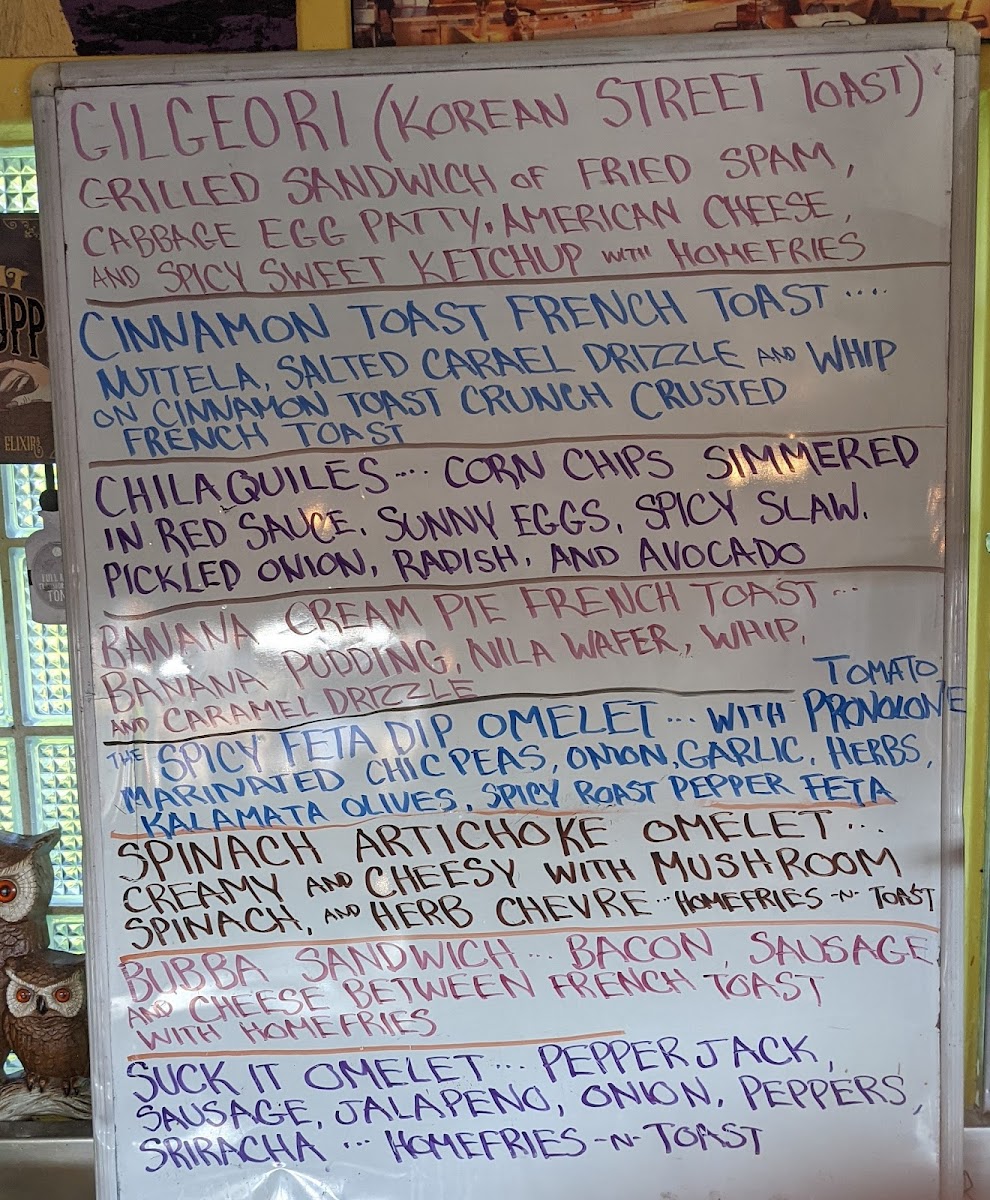 GILGEORI (KOREAN STREET TOAST)
GRILLED SANDWICH OF FRIED SPAM,
CABBAGE EGG PATTY, AMERICAN CHEESE,
AND SPICY SWEET KETCHUP WITH HOMEFRIES
CINNAMON TOAST FRENCH TOAST ....
NUTTELA, SALTED CARAEL DRIZZLE AND WHIP
ON CINNAMON TOAST CRUNCH CRUSTED
FRENCH TOAST
CHILAQUILES .... CORN CHIPS SIMMERED
IN RED SAUCE, SUNNY EGGS, SPICY SLAW,
PICKLED ONION, RADISH, AND AVOCADO
BANANA CREAM PIE FRENCH TOAST ...
BANANA PUDDING, NILA WAFER, WHIP,
AND CARAMEL DRIZZLE
TOMATO,
THE SPICY FETA DIP OMELET ... WITH PROVOLONE
MARINATED CHIC PEAS, ONION, GARLIC, HERBS,
KALAMATA OLIVES, SPICY ROAST PEPPER FETA
SPINACH ARTICHOKE OMELET ...
CREAMY AND CHEESY WITH MUSHROOM
SPINACH, AND HERB CHEVRE .. HOMEFRIES -N- TOAST
BUBBA SANDWICH ... BACON, SAUSAGE
AND CHEESE BETWEEN FRENCH TOAST
WITH HOMEFRIES
SUCK IT OMELET ... PEPPER JACK,
SAUSAGE, JALAPENO, ONION, PEPPERS,
SRIRACHA ... HOMEFRIES -N- TOAST
UPP
ELIXIR